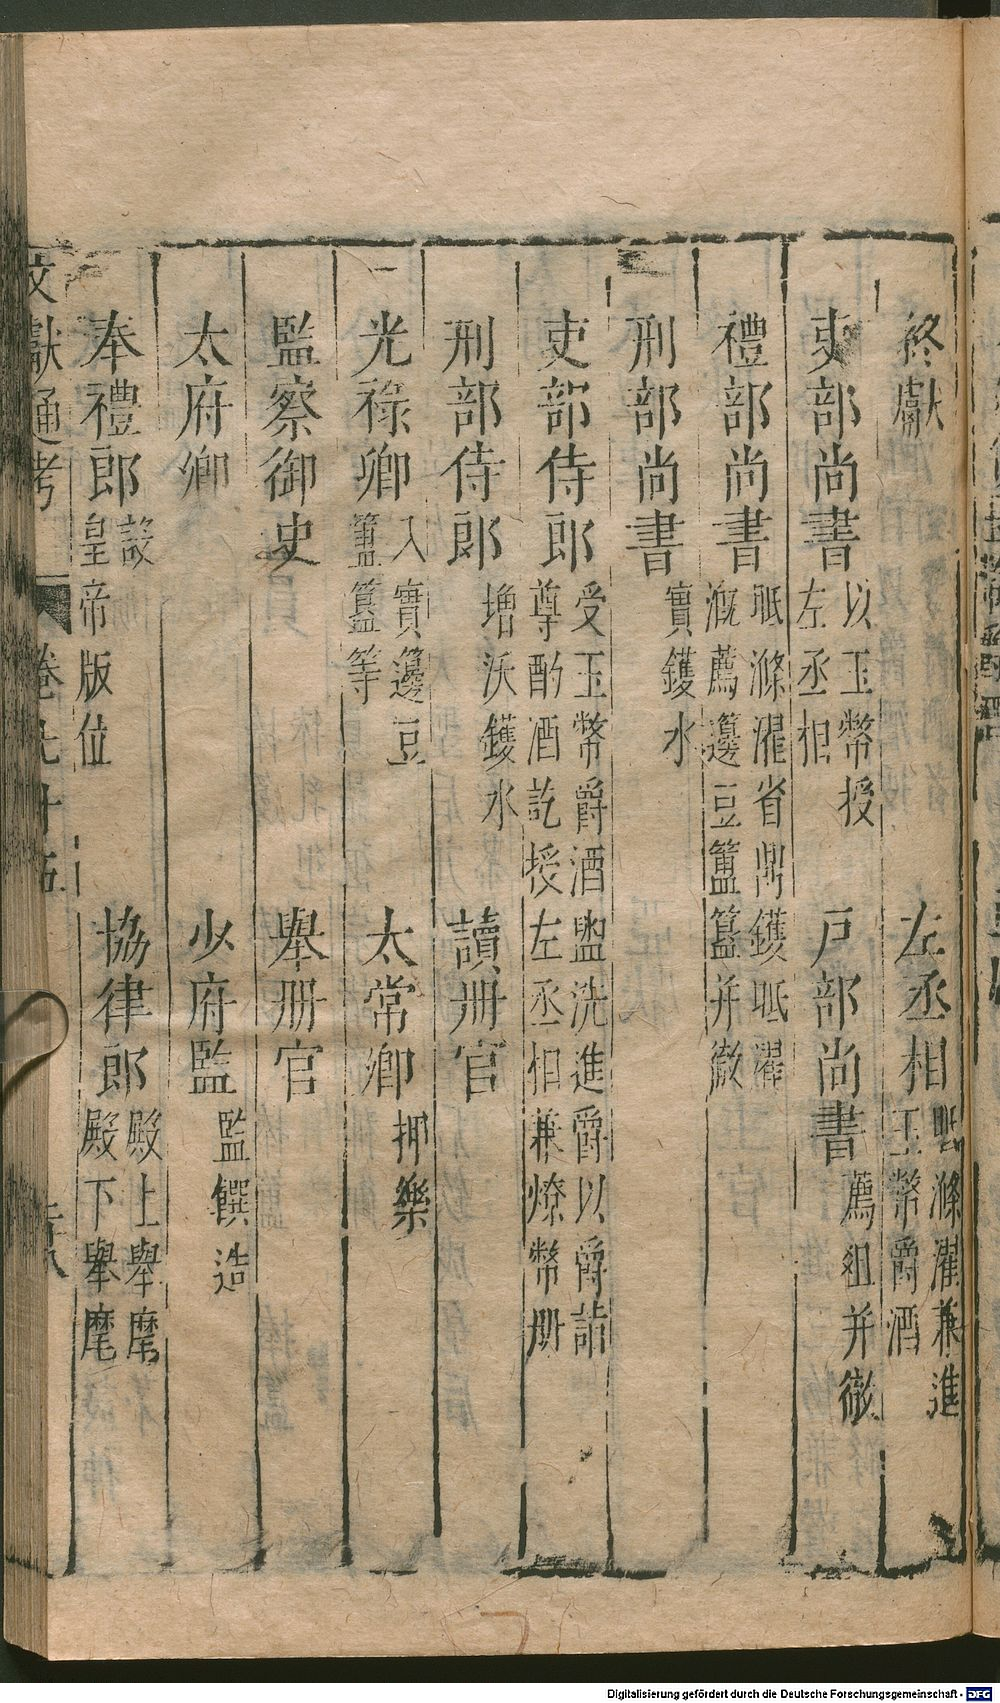 終獻 左丞相 眂滌濯兼進玉幣爵酒
吏部尚書 以玉幣授左丞相 戶部尚書 薦俎并徹
禮部尚書 眡滌濯省鼎鑊眡濯溉薦籩豆簠簋并徹
刑部尚書 實鑊水
吏部侍郎 受玉幣爵酒盥洗進爵以爵詣尊酌酒訖授左丞相兼燎幣册
刑部侍郎 增沃鑊水 讀册官
光祿卿 入實籩豆簠簋等 太常卿 押樂
監察御史 舉册官
太府卿 少府監 監饌造
奉禮郎 設皇帝版位 協律郎 殿上舉麾殿下舉麾
文獻通考 卷九十五
Digitalisierung gefördert durch die Deutsche Forschungsgemeinschaft - DFG